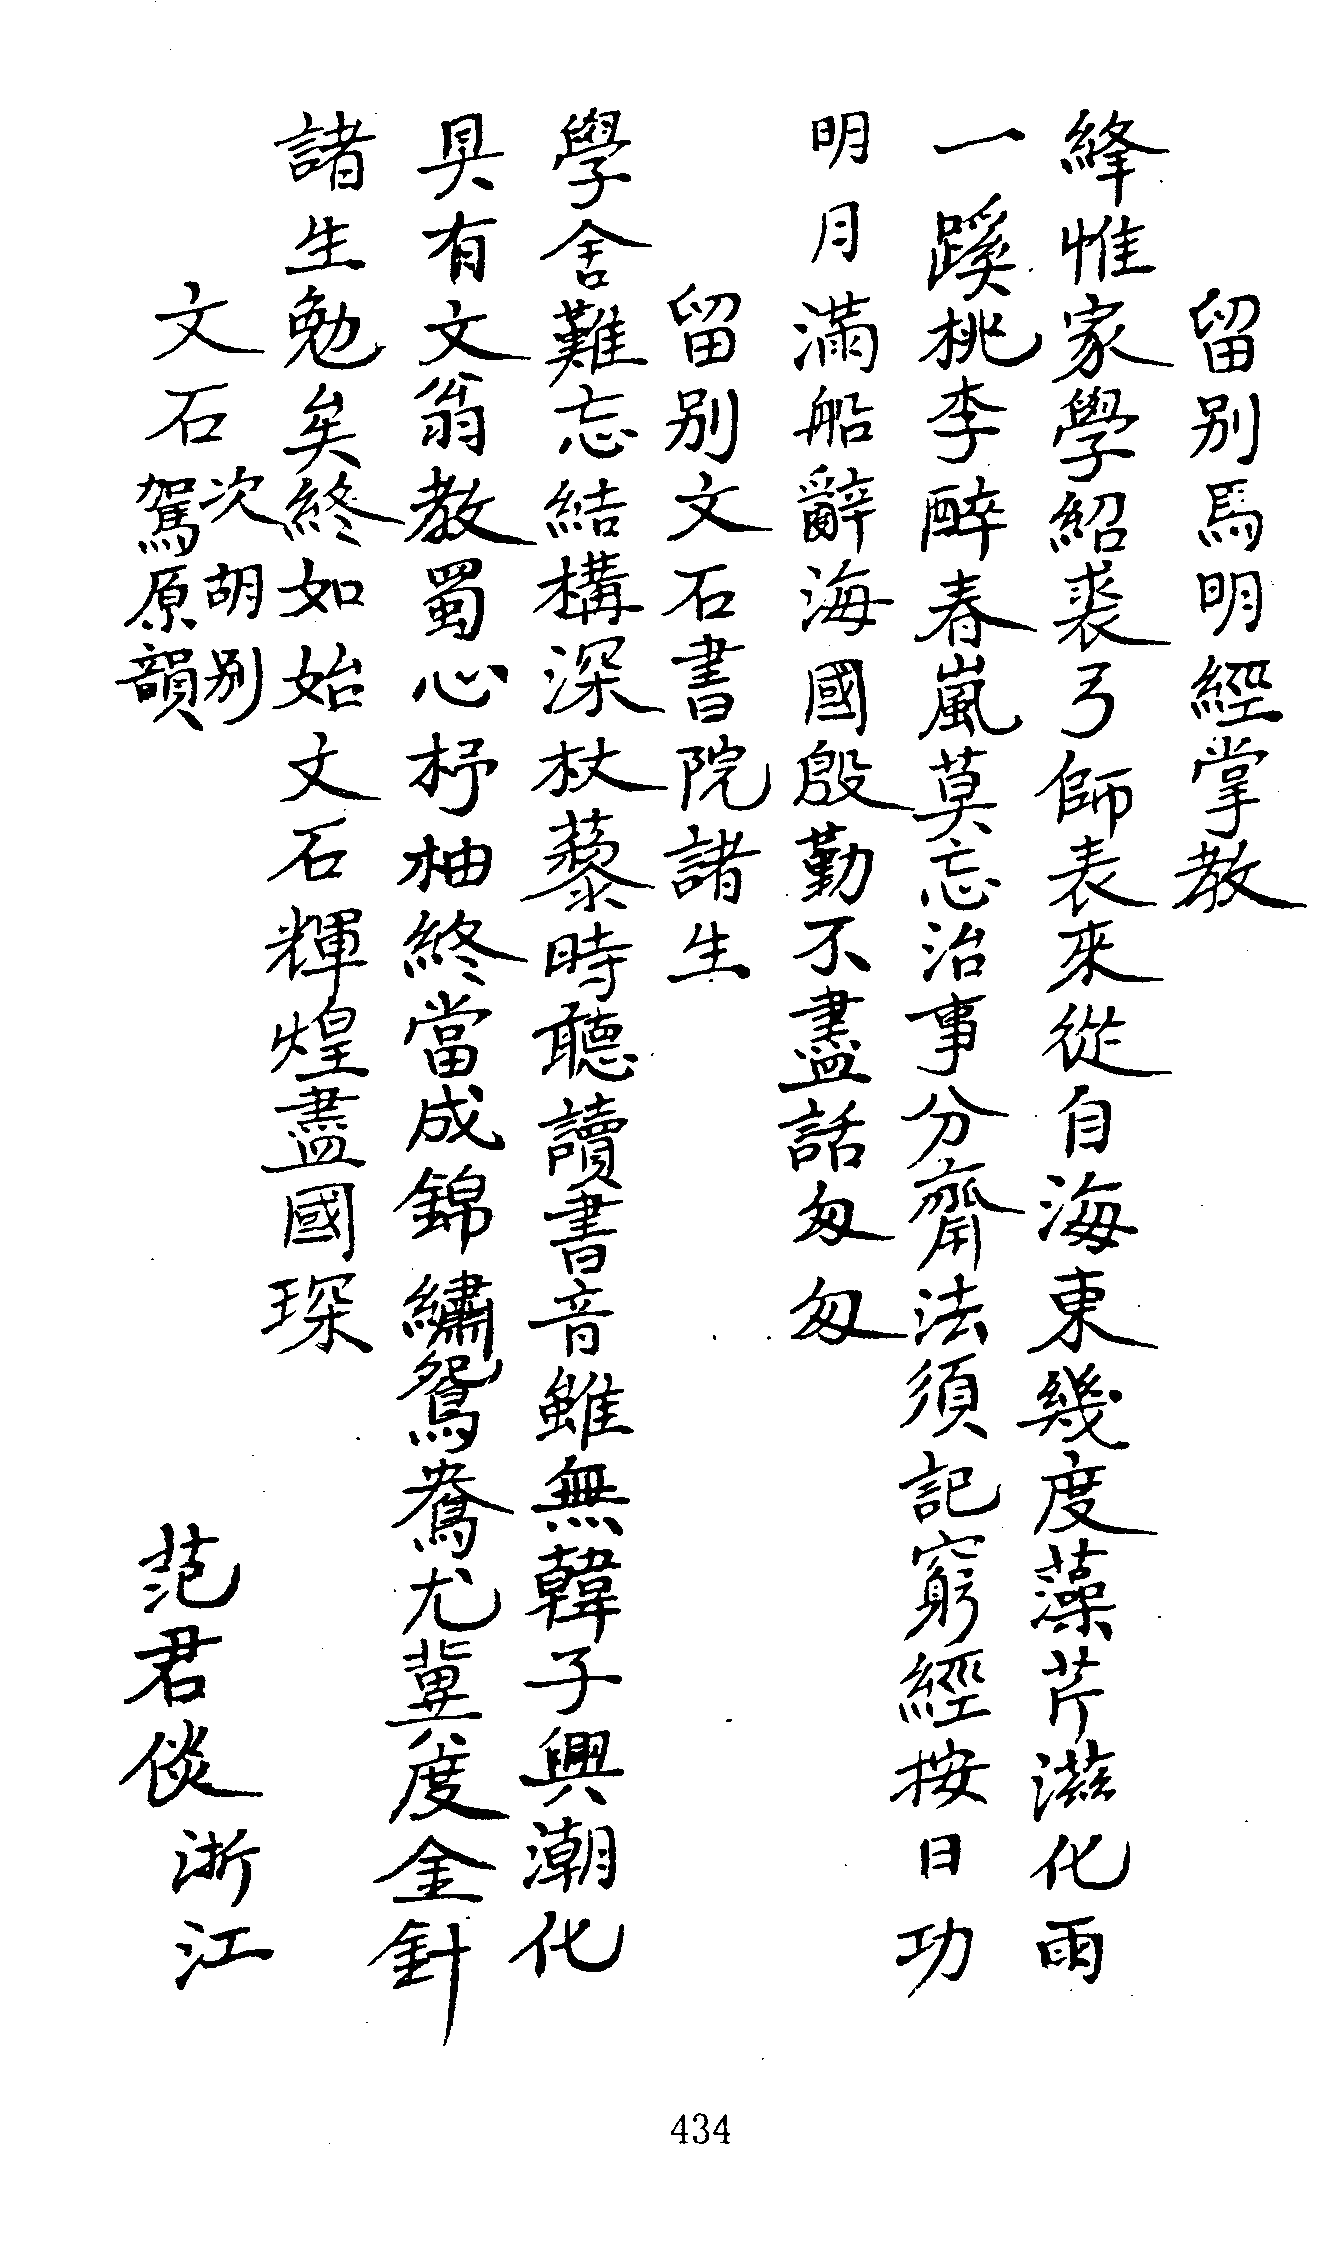 留别馬明經掌教
絳帷家學紹裘弓師表來從自海東幾度藻芹滋化雨
一蹊桃李醉春嵐莫忘治事分齋法須記窮經按日功
明月滿船辭海國殷勤不盡話匆匆
留别文石書院諸生
學舍難忘結構深杖藜時聽讀書音雖無韓子興潮化
具有文翁教蜀心杼柚終當成錦繡鴛鴦尤冀度金針
諸生勉矣終如始文石輝煌盡國琛
文石次胡别駕原韻
范君倓浙江
434